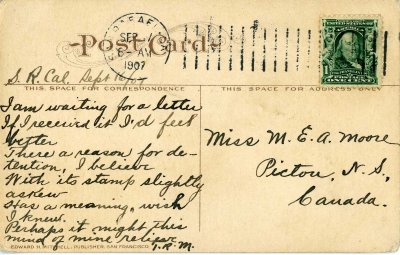 Post Card
SAN RAFAEL
SEP
AM
1907
UNITED STATES OF AMERICA
ONE CENT
S. R. Cal. Sept
THIS SPACE FOR CORRESPONDENCE
THIS SPACE FOR ADDRESS ONLY
I am waiting for a letter
If I received it I'd feel
better
There a reason for de-
tention, I believe
With its stamp slightly
askew
Has a meaning, wish
I knew.
Perhaps it might this
mind of mine relieve.
I.R.M.
Miss M. E. A. Moore
Pictou, N.S.,
Canada.
EDWARD H. MITCHELL, PUBLISHER, SAN FRANCISCO